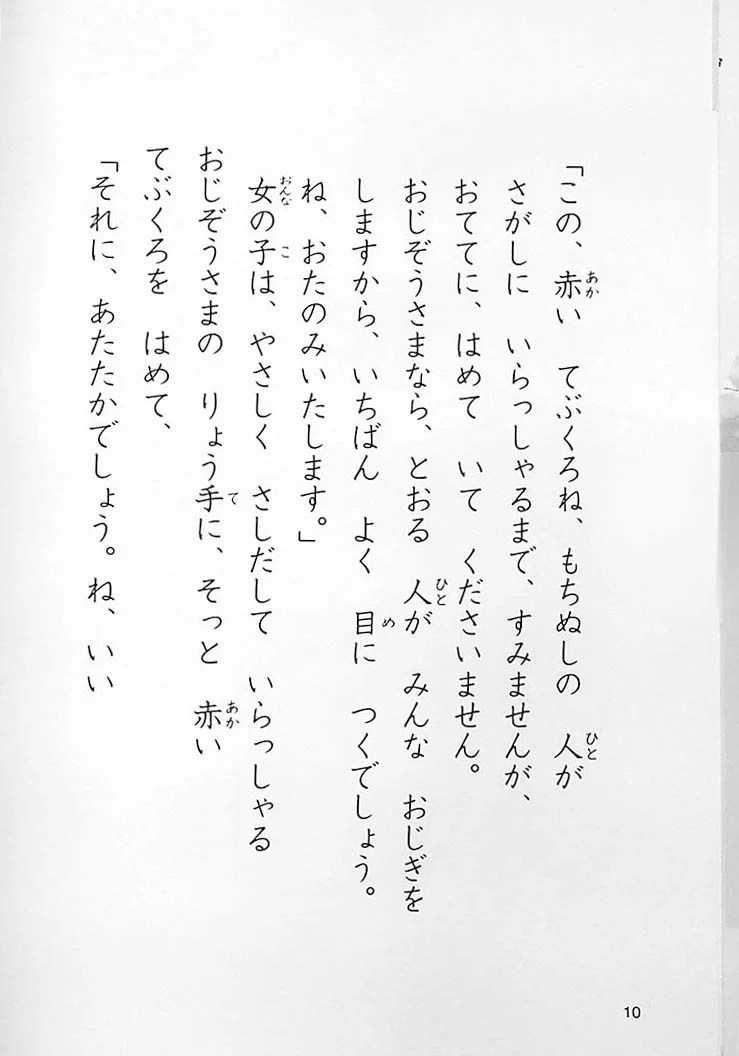 「この、赤い　てぶくろね、もちぬしの　人が
さがしに　いらっしゃるまで、すみませんが、
おててに、はめて　いて　くださいません。
おじぞうさまなら、とおる　人が　みんな　おじぎを
しますから、いちばん　よく　目に　つくでしょう。
ね、おたのみいたします。」
女の子は、やさしく　さしだして　いらっしゃる
おじぞうさまの　りょう手に、そっと　赤い
てぶくろを　はめて、
「それに、あたたかでしょう。ね、いい
10